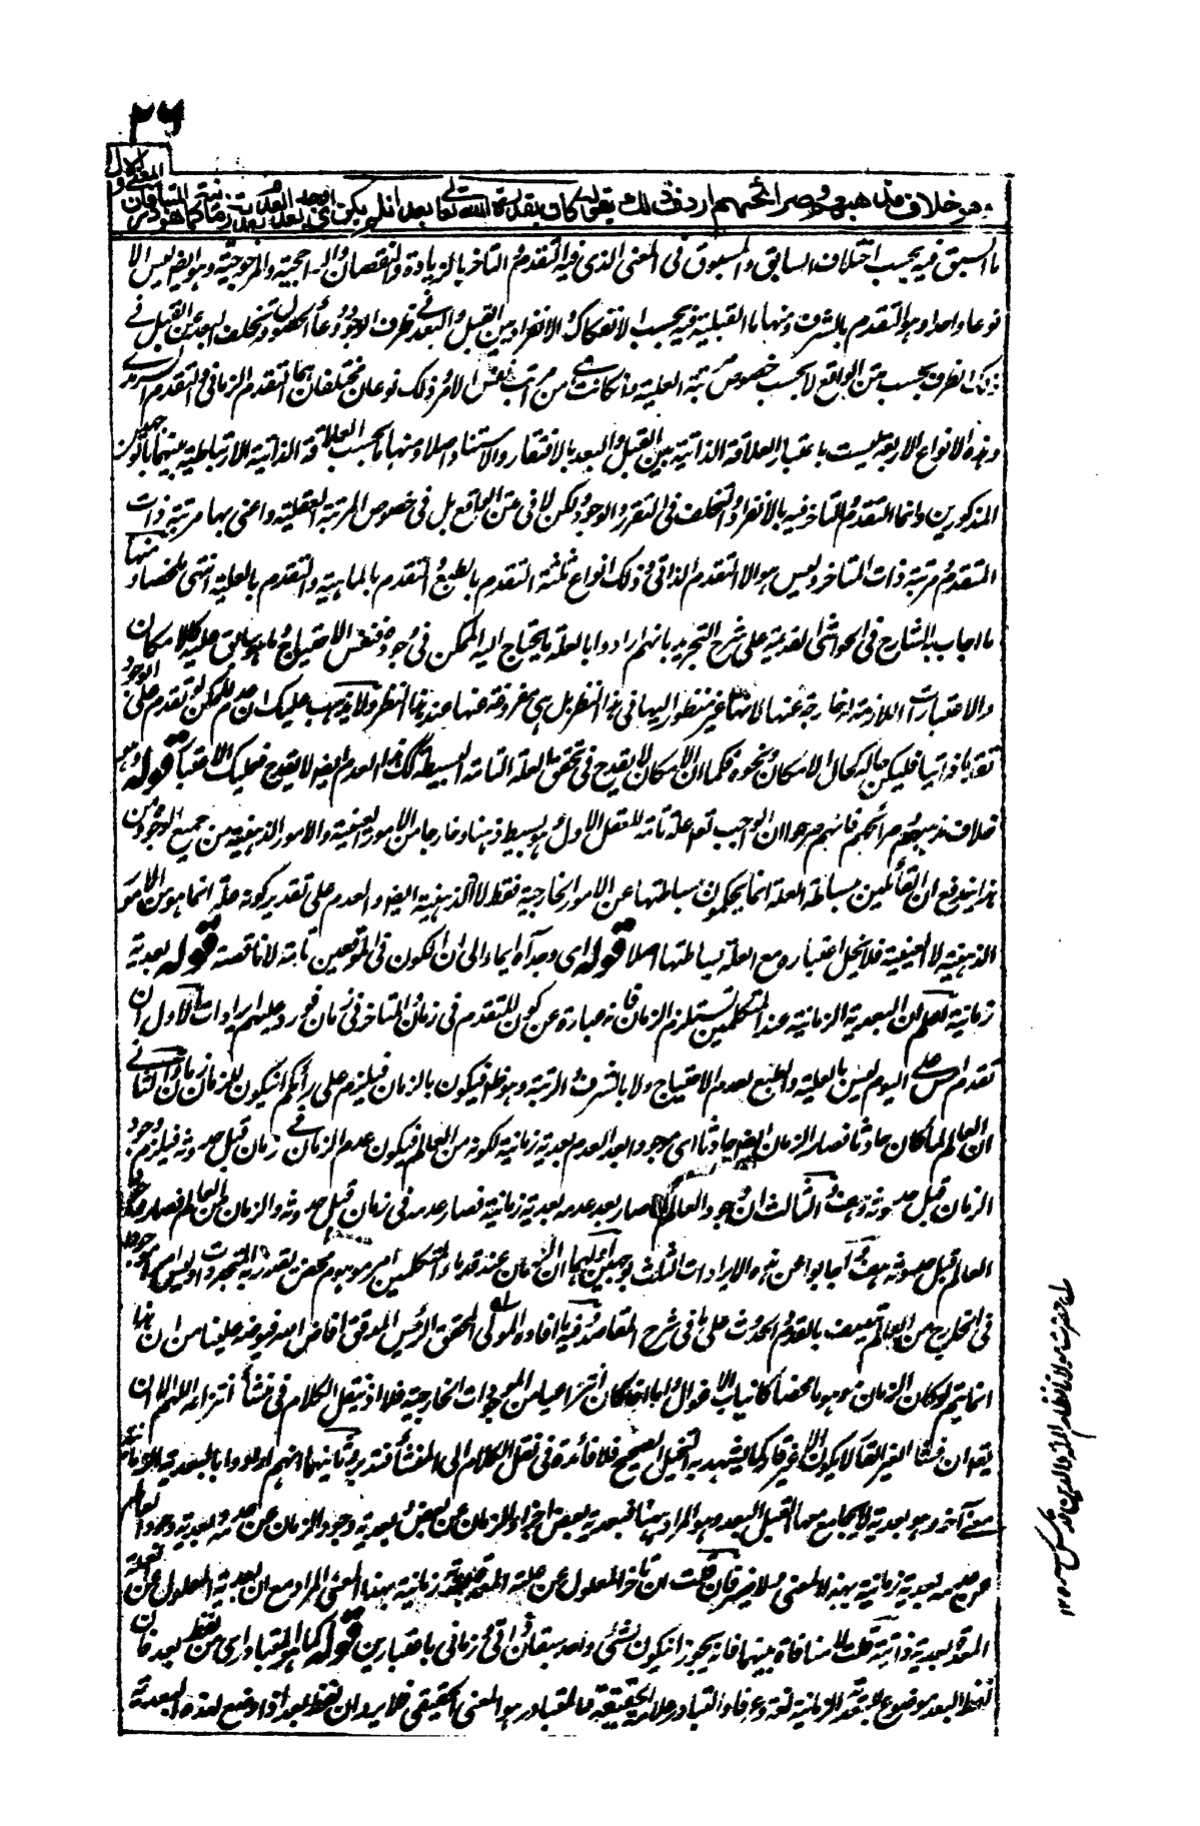 ٢٦
ما السبق فيه بحسب اختلاف السابق والمسبوق في المعنى الذي فيه التقدم والتاخر بالزيادة والنقصان والراجحية والمرجوحية وهو ايضا ليس الا
نوعا واحدا وهو التقدم بالشرف ومنها ما القبلية فيه بحسب الانفكاك والانفراد بين القبل والبعد في ظرف الوجود ووعاء الحصول وتخلف البعد عن القبل في
ذلك الظرف بحسب متن الواقع لا بحسب خصوص مرتبة العلية وما كانت من مراتب نفس الامر وذلك نوعان مختلفان هما التقدم الزماني والتقدم السرمدي
وهذه الانواع الاربعة ليست باعتبار العلاقة الذاتية بين القبل والبعد بالافتقار والاستناد اصلا ومنها ما بحسب العلاقة الذاتية الارتباطية بينهما بالوجهين
المذكورين وانما التقدم والتاخر فيه بالانفراد والتخلف في التقرر والوجود ولكن لا في متن الواقع بل في خصوص المرتبة العقلية واعني بها مرتبة ذات
المتقدم ومرتبة ذات المتاخر وليس هو الا التقدم الذاتي وذلك انواع ثلثة التقدم بالطبع والتقدم بالماهية والتقدم بالعلية انتهى ملخصا ومنها
ما اجاب به الشارح في الحواشي القديمة على شرح التجريد بانهم ارادوا بالعلة ما يحتاج اليه الممكن في وجوده فنفس الاحتياج وما هو سابق عليه كالامكان
والاعتبارات اللازمة له خارجة عنها لانها غير منظور اليها في هذا النظر بل هي مفروغة عنها عند هذا النظر ولا يذهب عليك ان عدم الممكن لو تقدم على الوجود
تقدما ذاتيا فليكن حاله كحال الامكان ونحوه فكما ان الامكان لا يقدح في تحقق العلة التامة البسيطة كذلك هذا العدم ايضا لا يقدح فعليك الاعتبار قوله وهو
خلاف مذهبهم وصرائحهم فانهم صرحوا ان الواجب تعالى علة تامة للعقل الاول وهو بسيط ذهنا وخارجا من الامور العينية والامور الذهنية من جميع الوجوه ومن
هذا يندفع ان القائلين ببساطة العلة انما يحكمون ببساطتها عن الامور الخارجية فقط لا الذهنية ايضا والعدم على تقدير كونه علة انما هو من الامور
الذهنية لا العينية فلا يخل اعتباره مع العلة ببساطتها اصلا قوله اي وجد آه ايماء الى ان الكون في الموقعين تامة لا ناقصة قوله بعدية
زمانية اعلم ان البعدية الزمانية عند المتكلمين تستلزم الزمان فانه عبارة عن كون المتقدم في زمان والمتاخر في زمان فورد عليهم ايرادات الاول ان
تقدم امس على اليوم ليس بالعلية والطبع لعدم الاحتياج ولا بالشرف والرتبة وهو ظاهر فيكون بالزمان فيلزم على رائكم ان يكون للزمان زمان الثاني
ان العالم لما كان حادثا فصار الزمان ايضا حادثا اي موجودا بعد العدم بعدية زمانية لكونه من العالم فيكون عدم الزمان في زمان قبل حدوثه فيلزم وجود
الزمان قبل حدوثه وهف الثالث ان وجود العالم لما صار بعد عدمه بعدية زمانية فصار عدمه في زمان قبل حدوثه والزمان من العالم فصار وجود
العالم قبل حدوثه هف اجابوا عن هذه الايرادات الثلث بوجهين اولهما ان الزمان عند قدماء المتكلمين امر موهوم محض يقدر به المتجددات وليس امرا موجودا
في الخارج من العالم يتصف بالقدم والحدوث على ما في شرح المقاصد وفيه ما افاده المولى المحقق الرئيس المدقق افاض الله فيوضه علينا من ان هذا
انما يتم لو كان الزمان موهوما محضا كانياب الاغوال واما اذا كان انتزاعيا من الموجودات الخارجية فلا اذ ننقل الكلام في منشأ انتزاعه اللهم الا ان
يقال ان منشأ الغير القار لا يكون الا غير قار كما يشهد به التخيل الصحيح فلا فائدة في نقل الكلام الى المنشأ فتدبر وثانيهما انهم ارادوا بالبعدية الزمانية
معنى آخر وهو بعدية لا يجامع معها القبل البعد وهو المراد ههنا فبعدية بعض اجزاء الزمان عن بعض وبعدية وجود الزمان عن عدمه وبعدية وجود العالم
عن عدمه بعدية زمانية بهذا المعنى فلا ضير فان قلت ان تاخر المعلول عن علته المعدة بعدية زمانية بهذا المعنى المراد مع ان بعدية المعلول عن العلة
المعدة بعدية ذاتية قلت لا منافاة بينهما فانه يجوز ان يكون لشئ واحد سبقان ذاتي وزماني باعتبارين قوله كما هو المتبادر اي من لفظ بعد فان
لفظ البعد موضوع للبعدية الزمانية لغة وعرفا والتبادر علامة الحقيقة فالمتبادر هو المعنى الحقيقي فلا يرد ان لفظ بعد اذا وضع لهذه البعدية